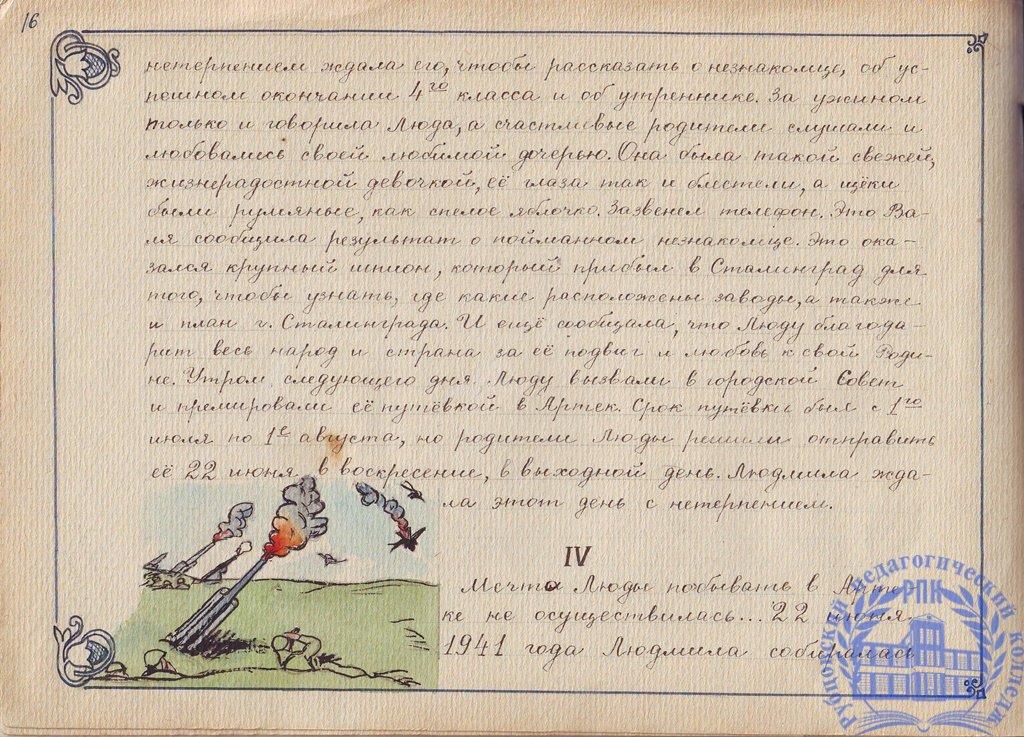 16
нетерпением ждала его, чтобы рассказать о незнакомце, об ус-
пешном окончании 4го класса и об утреннике. За ужином
только и говорила Люда, а счастливые родители слушали и
любовались своей любимой дочерью. Она была такой свежей,
жизнерадостной девочкой, её глаза так и блестели, а щёки
были румяные, как спелое яблочко. Зазвенел телефон. Это Ва-
ля сообщила результат о пойманном незнакомце. Это ока-
зался крупный шпион, который прибыл в Сталинград для
того, чтобы узнать, где какие расположены заводы, а также
и план г. Сталинграда. И ещё сообщала, что Люду благода-
рит весь народ и страна за её подвиг и любовь к свой Роди-
не. Утром следующего дня Люду вызвали в городской Совет
и премировали её путёвкой в Артек. Срок путёвки был с 1го
июля по 1е августа, но родители Люды решили отправить
её 22 июня в воскресение, в выходной день. Людмила жда-
ла этот день с нетерпением.
IV
Мечта Люды побывать в Арте-
ке не осуществилась... 22 июня
1941 года Людмила собиралась
Рубцовский педагогический колледж
РПК